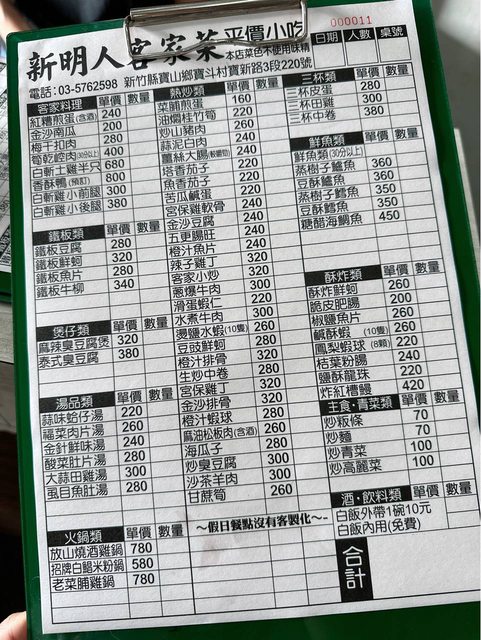 000011
新明人客家菜 平價小吃
本店菜色不使用味精
日期 人數 桌號
電話:03-5762598 新竹縣寶山鄉寶斗村寶新路3段220號
客家料理 單價 數量
紅糟煎蛋(含酒) 240
金沙南瓜 200
梅干扣肉 280
筍乾崆肉(30分以上) 400
白斬土雞半只 680
香酥鴨(預訂) 800
白斬雞小前腿 300
白斬雞小後腿 380
鐵板類 單價 數量
鐵板豆腐 280
鐵板鮮蚵 320
鐵板魚片 280
鐵板牛柳 340
煲仔類 單價 數量
麻辣臭豆腐煲 320
泰式臭豆腐 380
湯品類 單價 數量
蒜味蛤仔湯 220
福菜肉片湯 260
金針鮮味湯 240
酸菜肚片湯 280
大蒜田雞湯 300
虱目魚肚湯 280
火鍋類 單價 數量
放山燒酒雞鍋 780
招牌白鯧米粉鍋 580
老菜脯雞鍋 780
熱炒類 單價 數量
菜脯煎蛋 160
油燜桂竹筍 220
炒山豬肉 260
蒜泥白肉 240
薑絲大腸 240
塔香茄子 220
魚香茄子 220
苦瓜鹹蛋 220
宮保雞軟骨 240
金沙豆腐 240
五更腸旺 240
橙汁魚片 240
辣子雞丁 320
客家小炒 320
蔥爆牛肉 300
滑蛋蝦仁 220
水煮牛肉 300
燙鹽水蝦(10隻) 260
豆豉鮮蚵 280
橙汁排骨 320
生炒中卷 280
宮保雞丁 320
金沙排骨 320
橙汁蝦球 280
麻油松板肉(含酒) 260
海瓜子 280
炒臭豆腐 300
沙茶羊肉 300
甘蔗筍 260
~假日餐點沒有客製化~
三杯類 單價 數量
三杯皮蛋 280
三杯田雞 300
三杯中卷 380
鮮魚類 單價 數量
鮮魚類(30分以上)
蒸樹子鱸魚 360
豆酥鱸魚 360
蒸樹子鱈魚 350
豆酥鱈魚 350
糖醋海鯛魚 450
酥炸類 單價 數量
酥炸鮮蚵 260
脆皮肥腸 200
椒鹽魚片 260
鹹酥蝦(10隻) 260
鳳梨蝦球(8顆) 220
桔葉粉腸 240
鹽酥龍珠 220
炸紅槽鰻 420
主食·青菜類 單價 數量
炒粄條 70
炒麵 70
炒青菜 100
炒高麗菜 100
酒·飲料類 單價 數量
白飯外帶1碗10元
白飯內用(免費)
合計